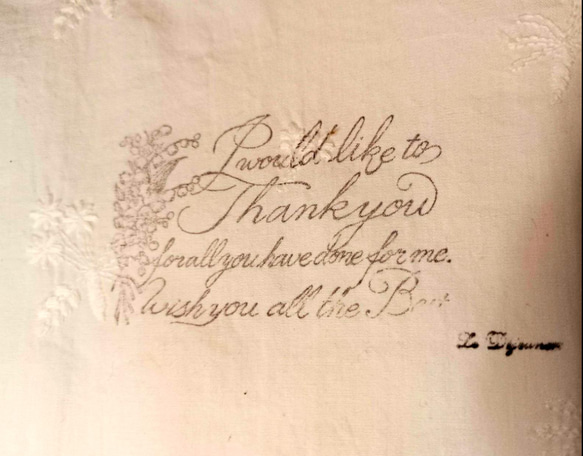 I would like to
Thank you
for all you have done for me.
wish you all the Best
Le Dejeuner